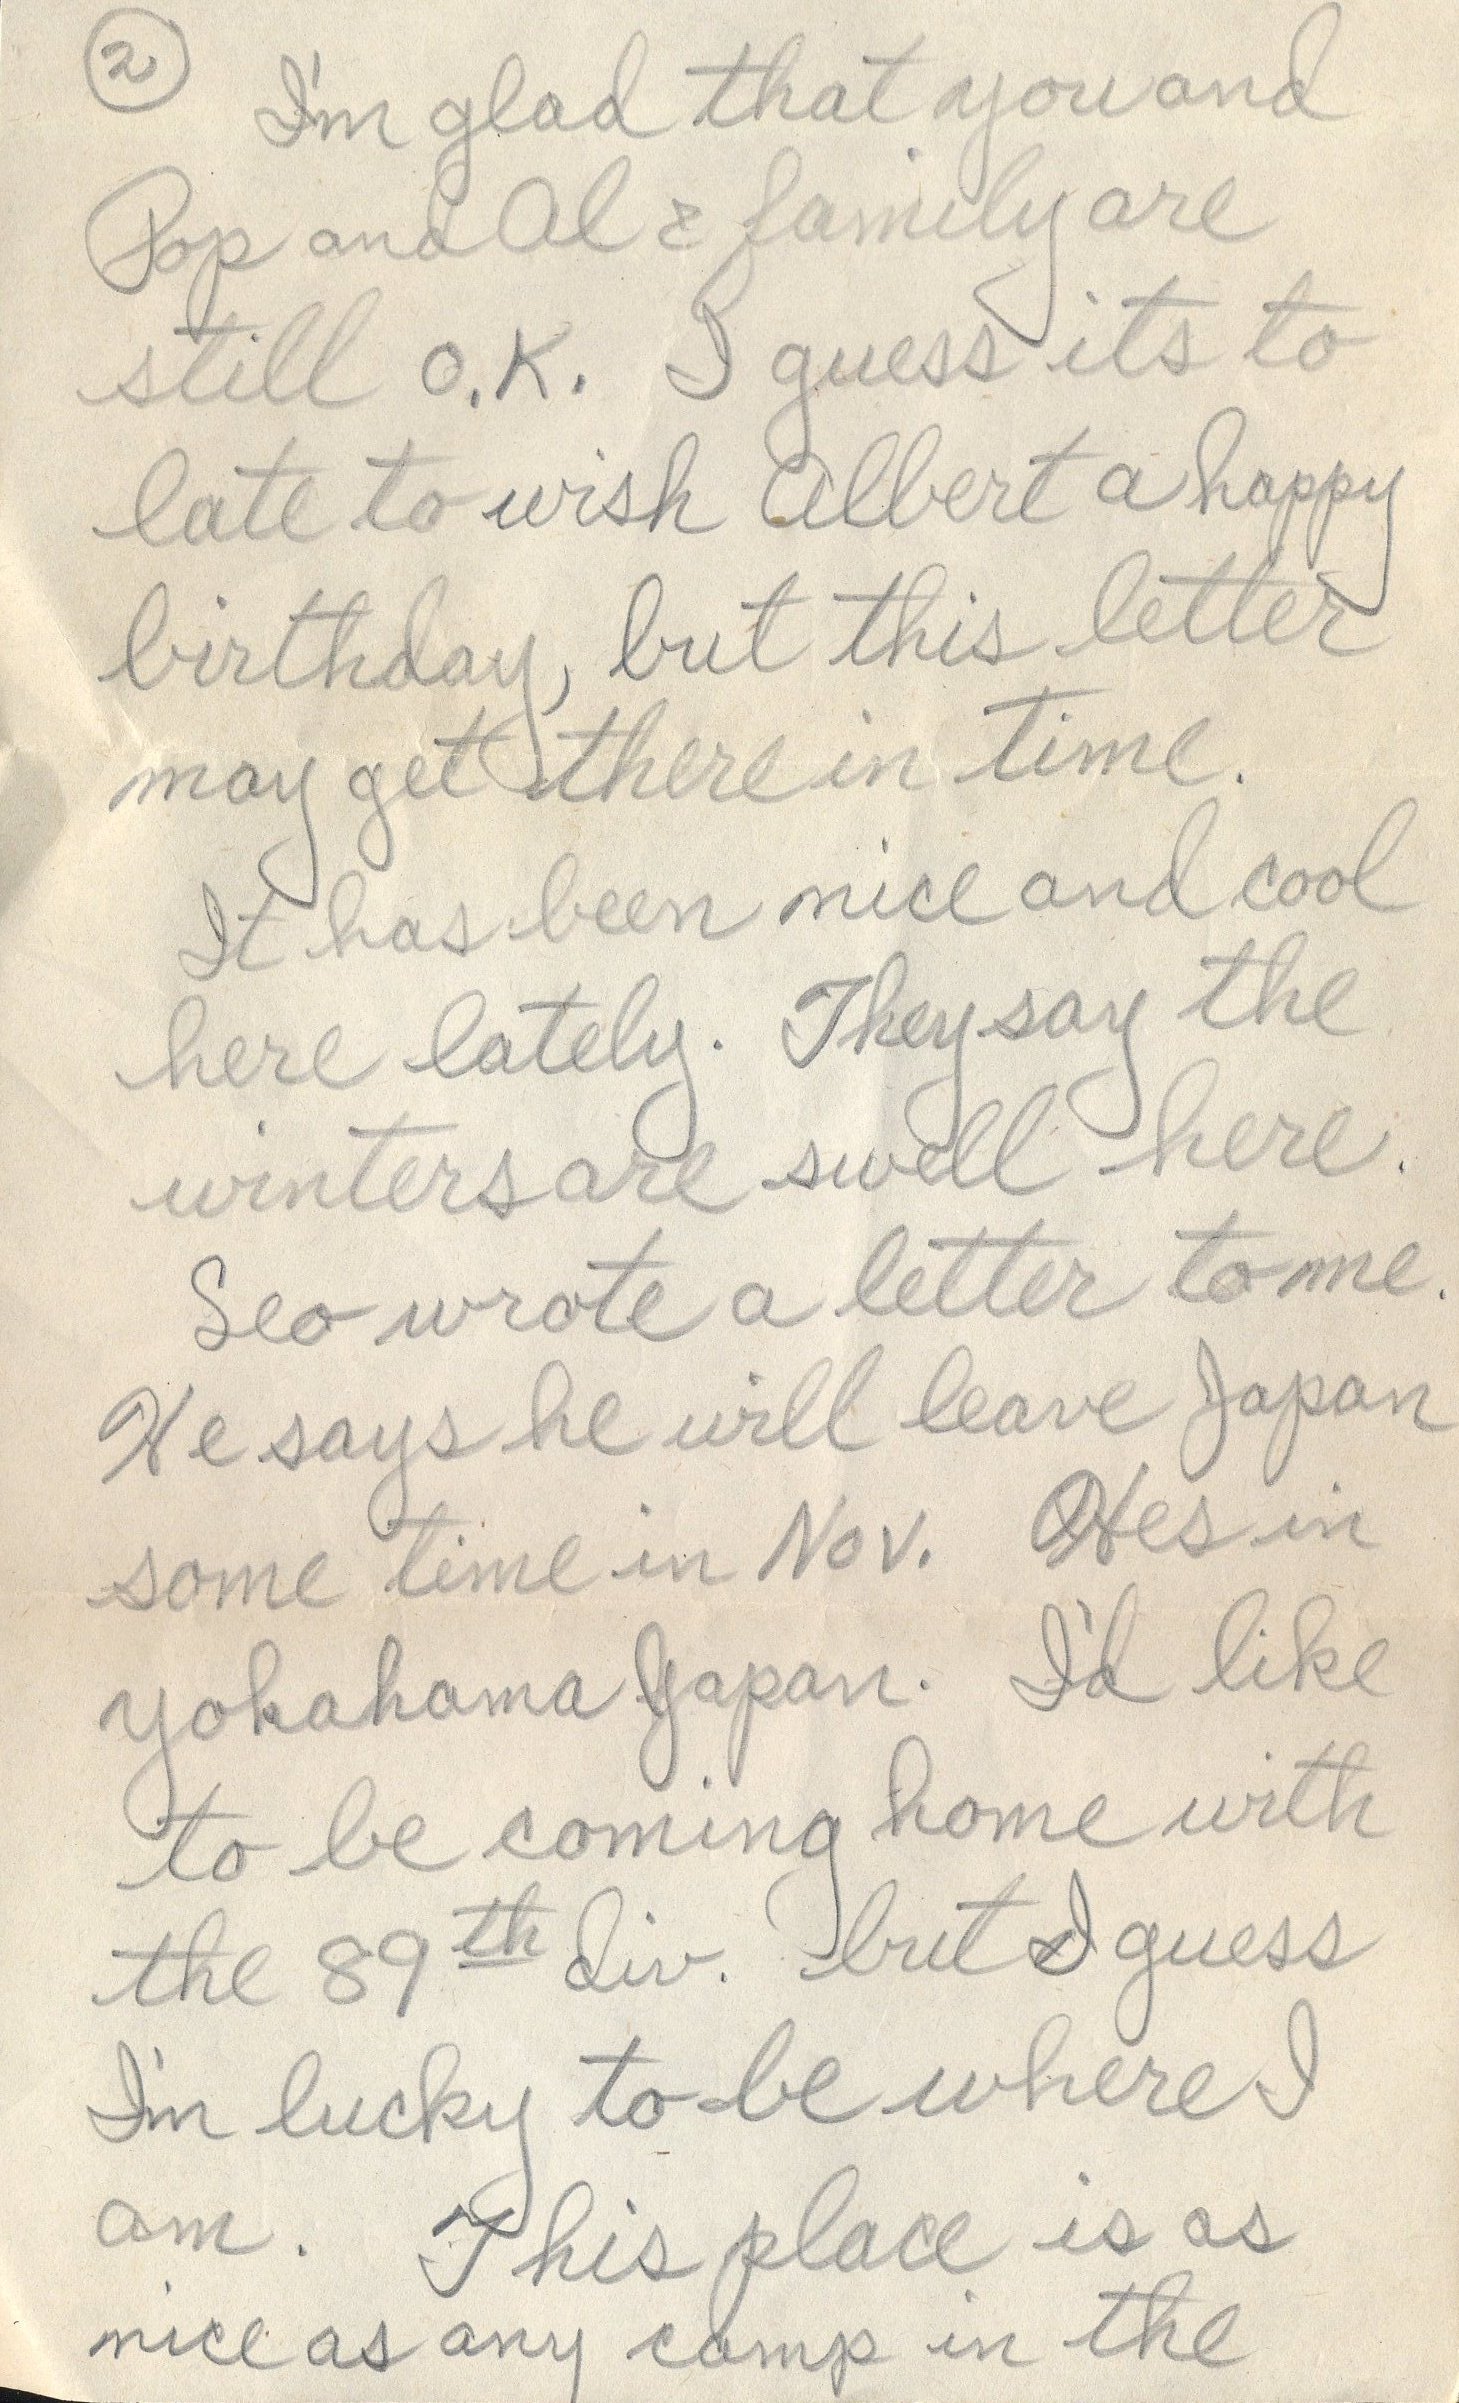 2
I'm glad that you and
Pop and Al & family are
still O.K. I guess its to
late to wish Albert a happy
birthday, but this letter
may get there in time.
It has been nice and cool
here lately. They say the
winters are swell here.
Leo wrote a letter to me.
He says he will leave Japan
some time in Nov. Hes in
Yokahama Japan. I'd like
to be coming home with
the 89th div. but I guess
I'm lucky to be where I
am. This place is as
nice as any camp in the